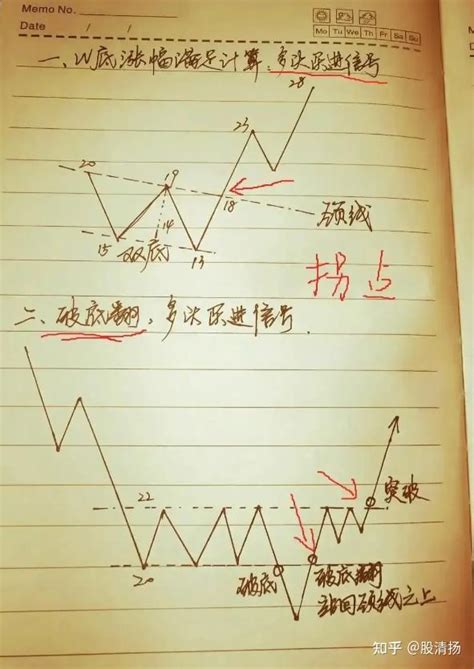 Memo No.
Date / /
Mo Tu We Th Fr Sa Su
一、W底涨幅满足计算,多头跃进信号
28
23
20
19
18
颈线
15
双底
14
13
拐点
二、破底翻,多头跃进信号.
22
突破
20
破底
破底翻
站回颈线之上
知乎 @股清扬